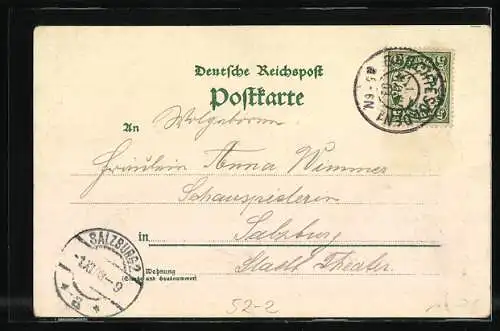 Deutsche Reichspost
Postkarte
An Wolgeboren
Fräulein Anna Wimmer
Schauspielerin
in Salzburg
Wohnung Stadt Theater.
(Straße und Hausnummer)
SALZBURG 2
52-2